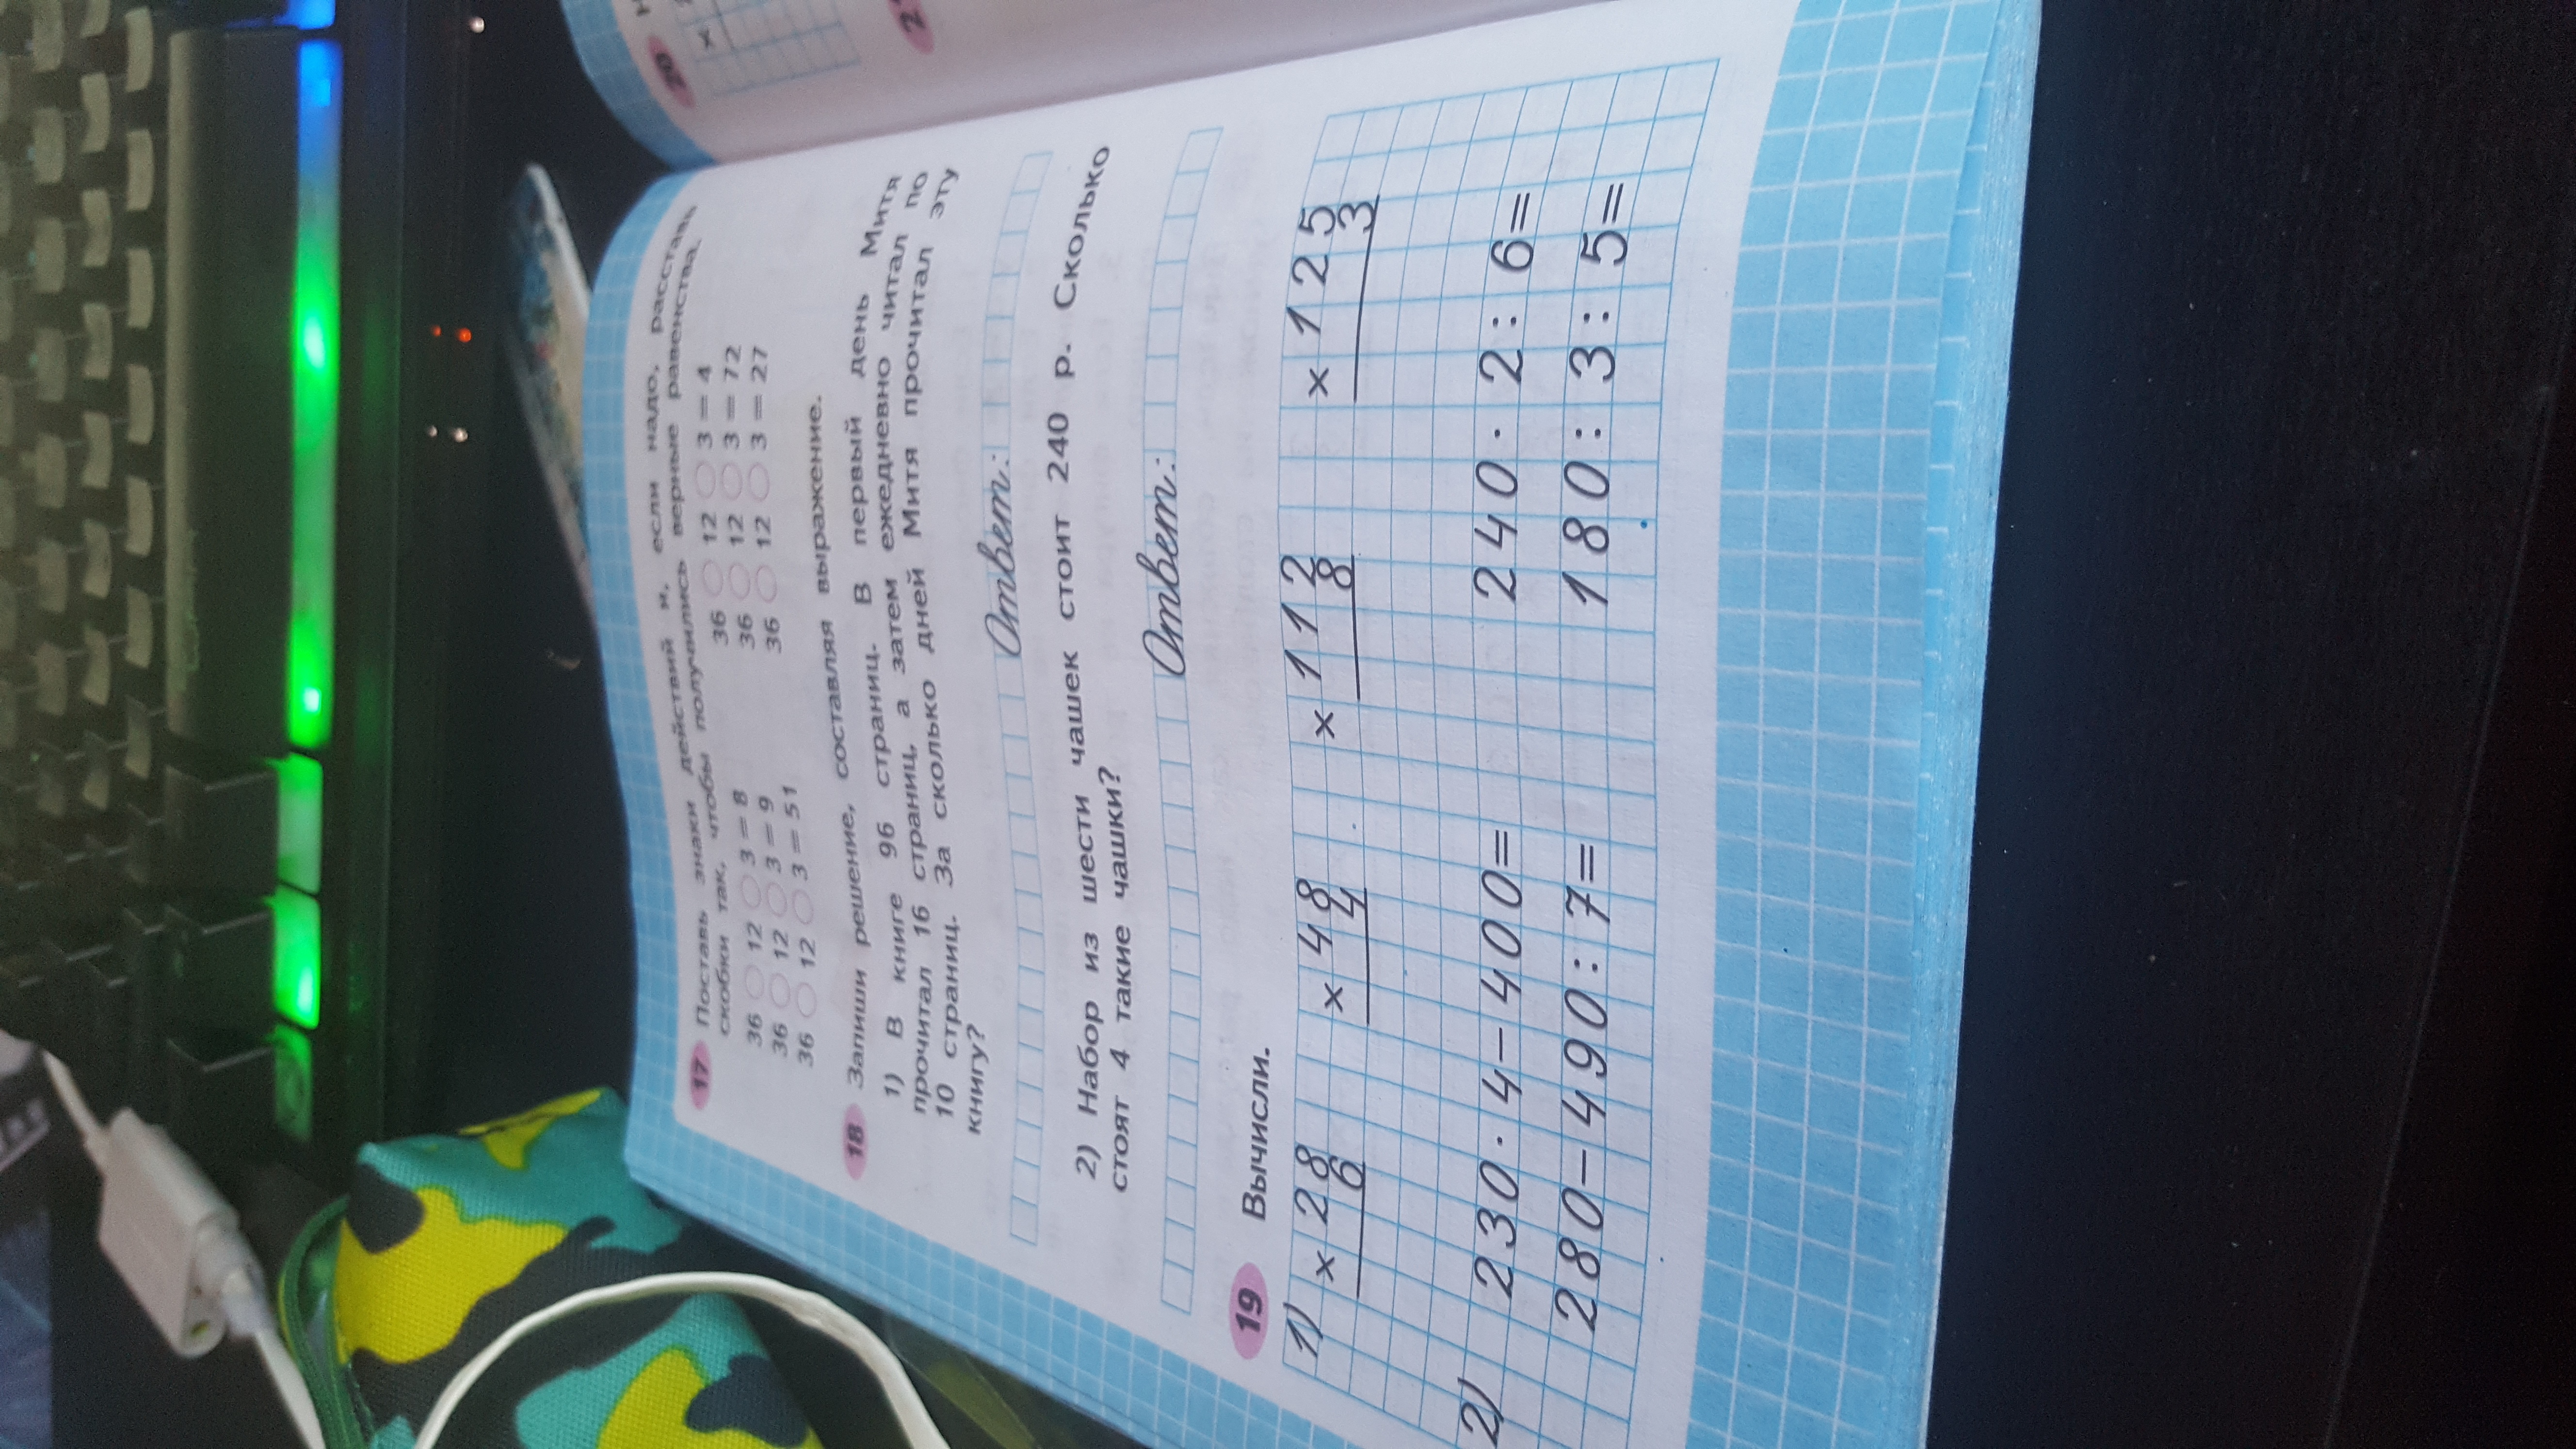 17 Поставь знаки действий и, если надо, расставь
скобки так, чтобы получились верные равенства.
36 ○ 12 ○ 3 = 8 36 ○ 12 ○ 3 = 4
36 ○ 12 ○ 3 = 9 36 ○ 12 ○ 3 = 72
36 ○ 12 ○ 3 = 51 36 ○ 12 ○ 3 = 27
18 Запиши решение, составляя выражение.
1) В книге 96 страниц. В первый день Митя
прочитал 16 страниц, а затем ежедневно читал по
10 страниц. За сколько дней Митя прочитал эту
книгу?
Ответ:
2) Набор из шести чашек стоит 240 р. Сколько
стоят 4 такие чашки?
Ответ:
19 Вычисли.
1) × 28 × 48 × 112 × 125
6 4 8 3
2) 230 · 4 − 400 = 240 · 2 : 6 =
280 − 490 : 7 = 180 : 3 : 5 =
20
×